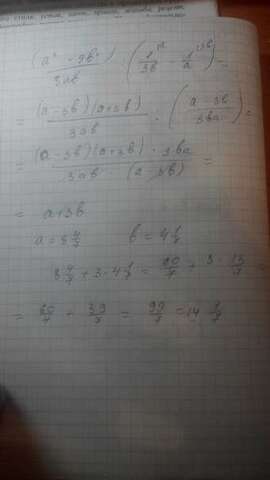 (a² - 9b²)/3ab : (1/3b - 1/a) =
= (a - 3b)(a + 3b)/3ab : (a - 3b/3ba) =
= (a - 3b)(a + 3b) · 3ba/3ab (a - 3b) =
= a + 3b
a = 8 4/7 b = 4 1/7
8 4/7 + 3 · 4 1/7 = 60/7 + 3 · 13/7 =
= 60/7 + 39/7 = 99/7 = 14 1/7